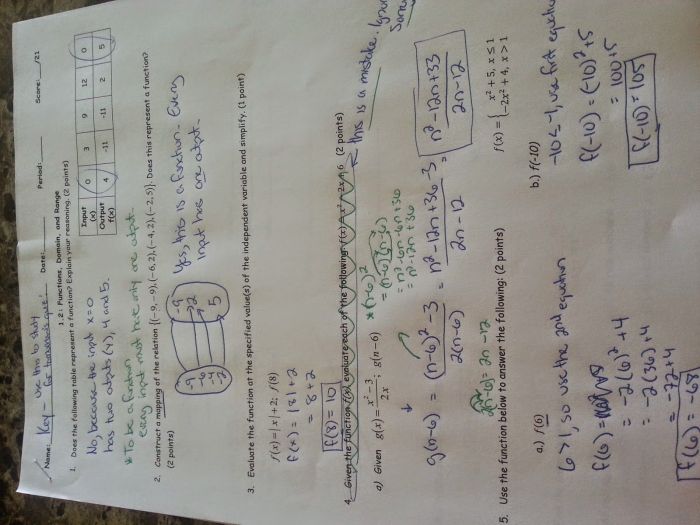 Name: Key Date: Period: Score: /21
use this to study
for tomorrow's quiz!
1.2: Functions, Domain, and Range
1. Does the following table represent a function? Explain your reasoning. (2 points)
Input (x) 0 3 9 12 0
Output f(x) 4 -11 -11 2 5
No, because the input x=0
has two outputs (y), 4 and 5.
* To be a function
every input must have only one output.
2. Construct a mapping of the relation {(-9, -9), (-6, 2), (-4, 2), (-2, 5)}. Does this represent a function?
(2 points)
-9 -9
-6 2
-4 5
-2
Yes, this is a function. Every
input has one output.
3. Evaluate the function at the specified value(s) of the independent variable and simplify. (1 point)
f(x) = |x| + 2; f(8)
f(8) = |8| + 2
= 8 + 2
f(8) = 10
4. Given the function f(x), evaluate each of the following: f(x) = x² - 2x + 6 (2 points)
this is a mistake.
a) Given g(x) = x² - 3 / 2x ; g(n-6)
* (n-6)²
= (n-6)(n-6)
= n² - 6n - 6n + 36
= n² - 12n + 36
g(n-6) = (n-6)² - 3 / 2(n-6) = n² - 12n + 36 - 3 / 2n - 12 = n² - 12n + 33 / 2n - 12
2(n-6) = 2n - 12
5. Use the function below to answer the following: (2 points)
f(x) = { x² + 5, x ≤ 1
-2x² + 4, x > 1
a.) f(6)
6 > 1, so use the 2nd equation
f(6) =
= -2(6)² + 4
= -2(36) + 4
= -72 + 4
f(6) = -68
b.) f(-10)
-10 ≤ -1, use first equation
f(-10) = (-10)² + 5
= 100 + 5
f(-10) = 105